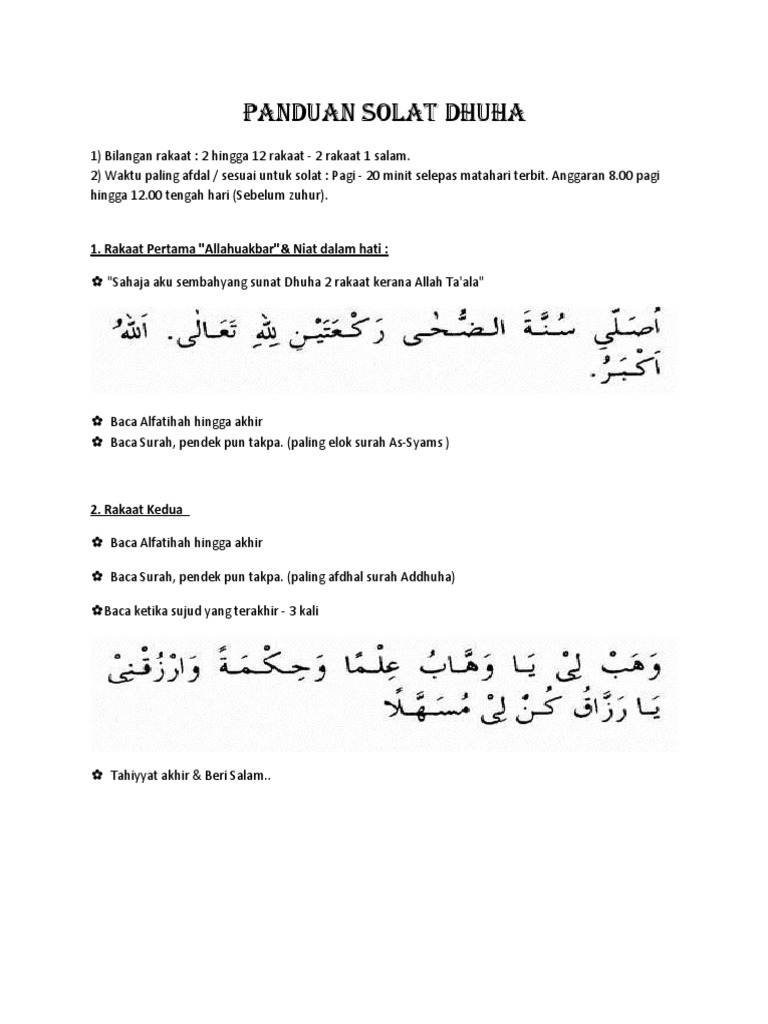 PANDUAN SOLAT DHUHA
1) Bilangan rakaat : 2 hingga 12 rakaat - 2 rakaat 1 salam.
2) Waktu paling afdal / sesuai untuk solat : Pagi - 20 minit selepas matahari terbit. Anggaran 8.00 pagi
hingga 12.00 tengah hari (Sebelum zuhur).
1. Rakaat Pertama "Allahuakbar"& Niat dalam hati :
✿ "Sahaja aku sembahyang sunat Dhuha 2 rakaat kerana Allah Ta'ala"
اُصَلِّي سُنَّةَ الضُّحٰى رَكْعَتَيْنِ لِلّٰهِ تَعَالٰى. اَللّٰهُ
اَكْبَرُ.
✿ Baca Alfatihah hingga akhir
✿ Baca Surah, pendek pun takpa. (paling elok surah As-Syams )
2. Rakaat Kedua
✿ Baca Alfatihah hingga akhir
✿ Baca Surah, pendek pun takpa. (paling afdhal surah Addhuha)
✿Baca ketika sujud yang terakhir - 3 kali
وَهَبْ لِىْ يَا وَهَّابُ عِلْمًا وَحِكْمَةً وَارْزُقْنِىْ
يَا رَزَّاقُ كُنْ لِىْ مُسَهَّلًا
✿ Tahiyyat akhir & Beri Salam..